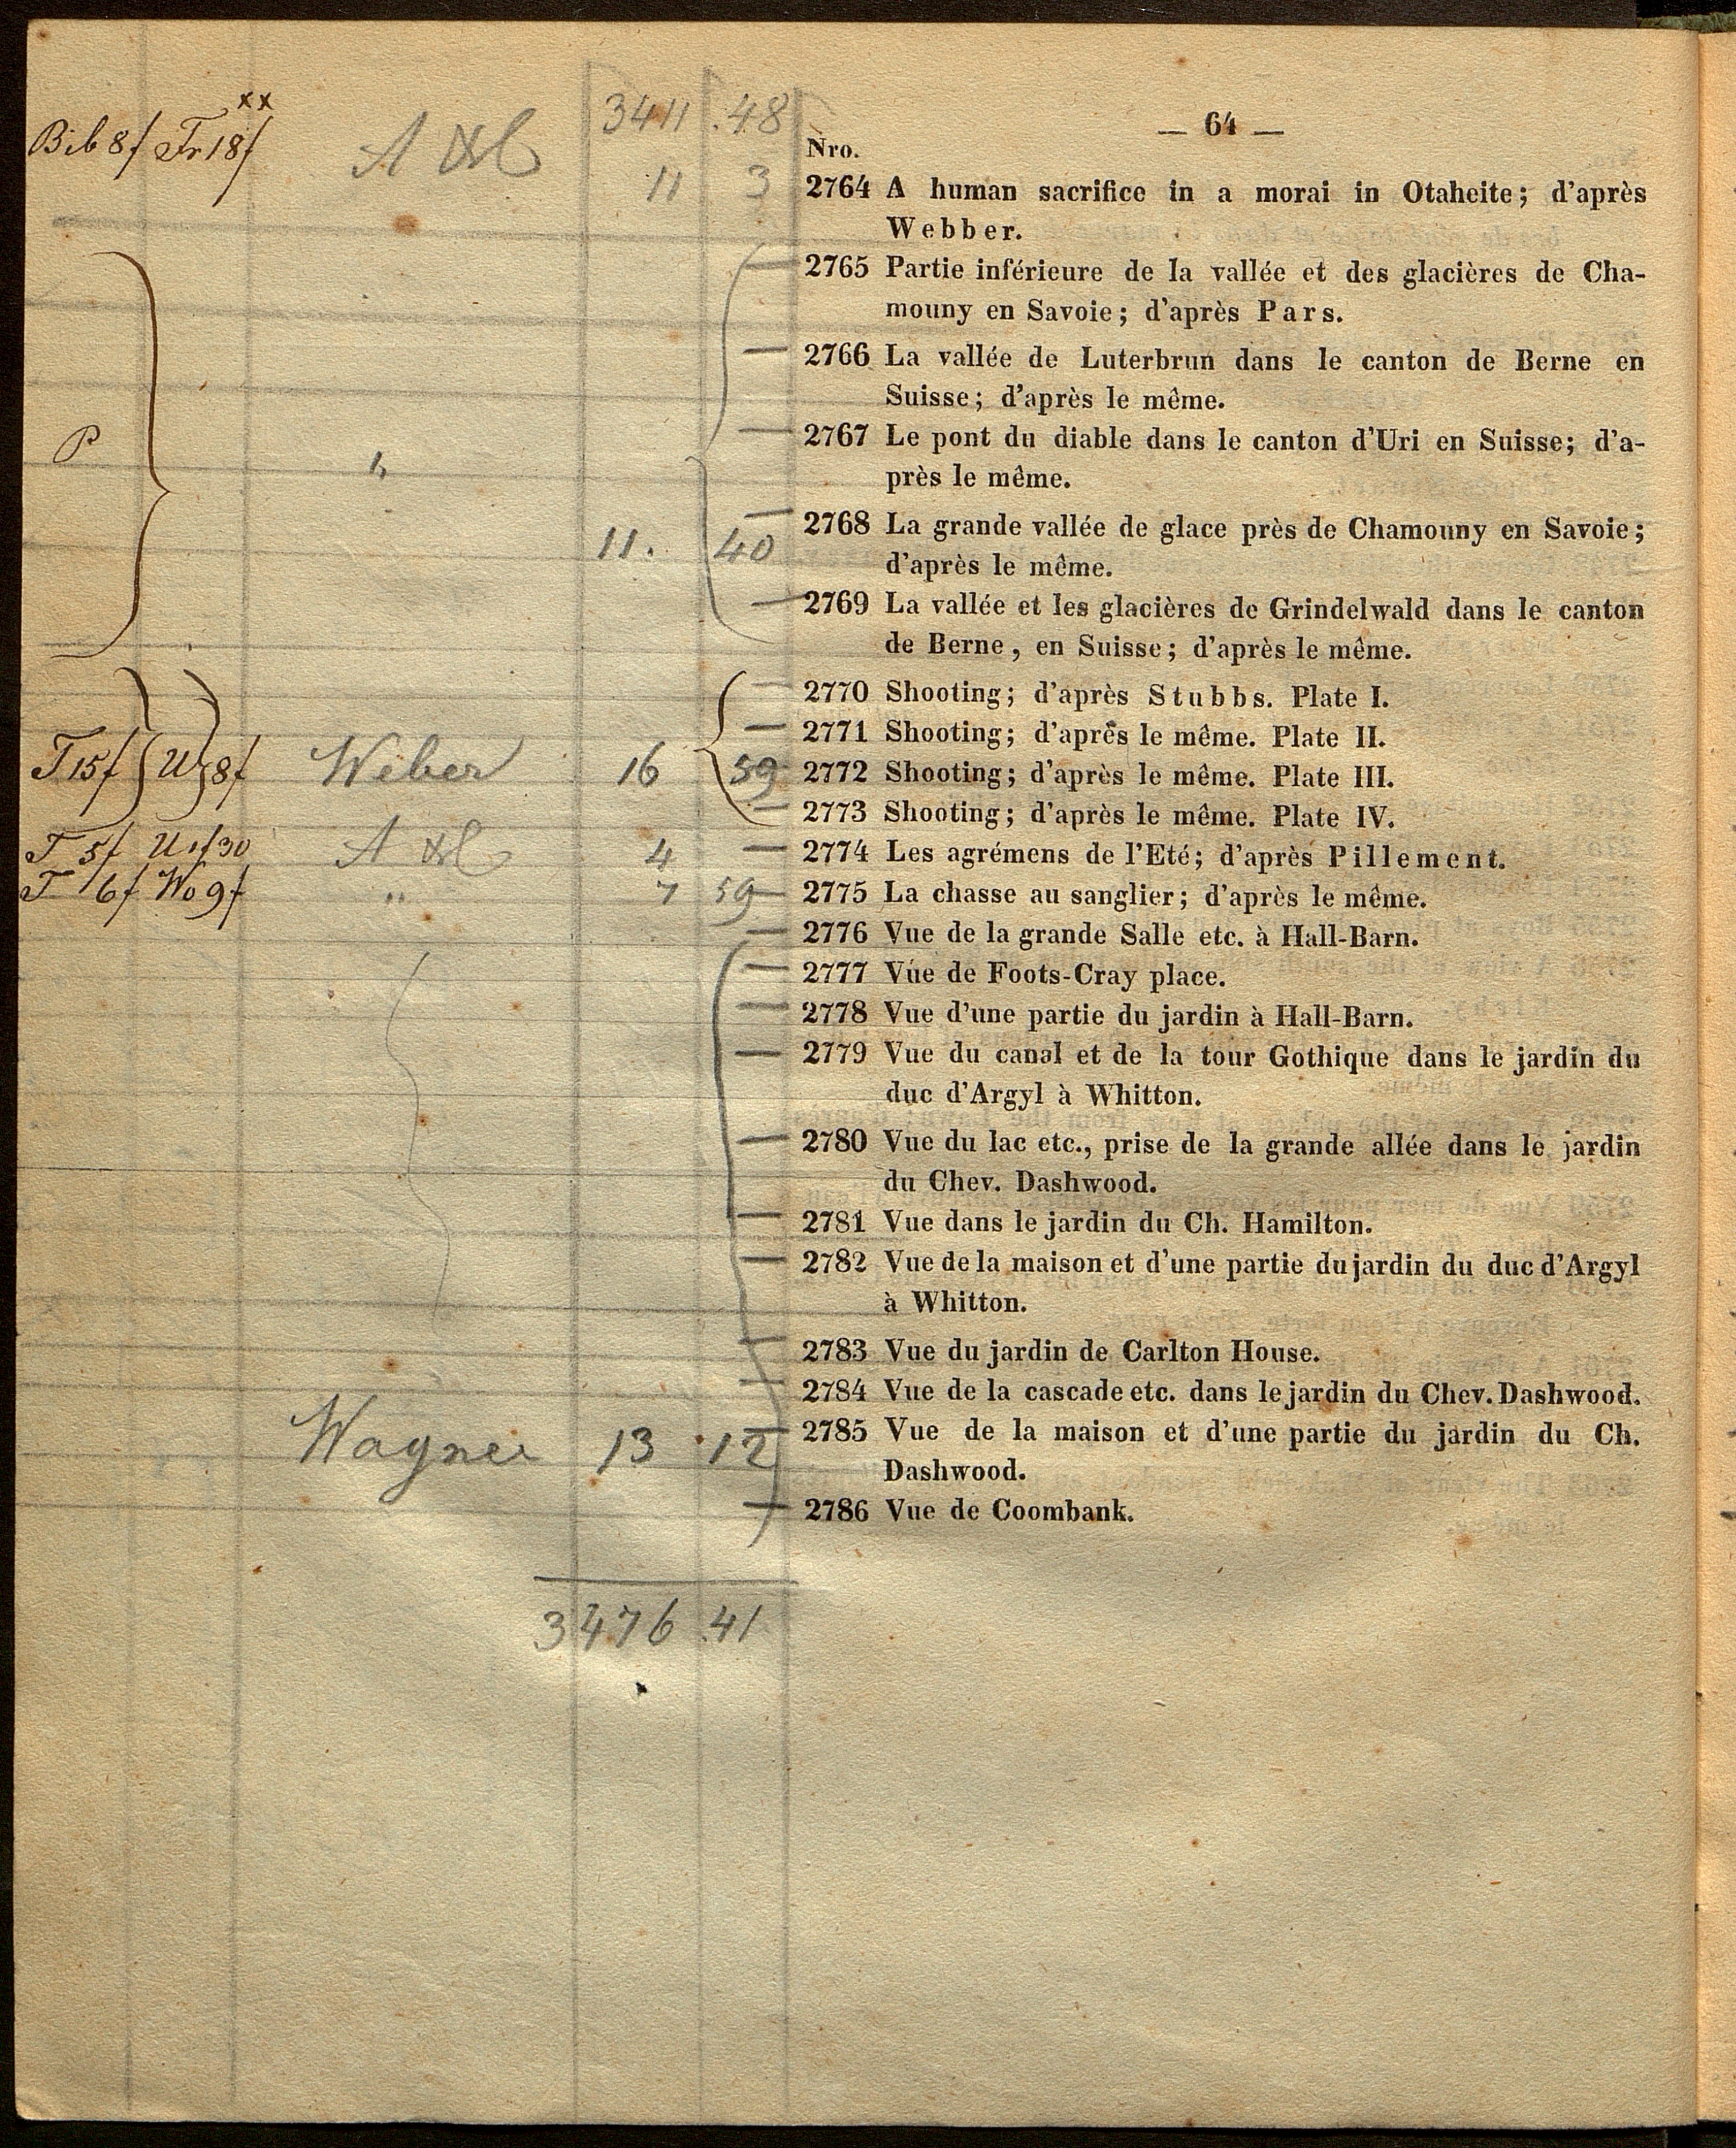 3411 .48
— 64 —
Bib 8f Fr 18f xx
Nro.
11 3 2764 A human sacrifice in a morai in Otaheite; d'après
Webber.
— 2765 Partie inférieure de la vallée et des glacières de Cha-
mouny en Savoie; d'après Pars.
— 2766 La vallée de Luterbrun dans le canton de Berne en
Suisse; d'après le même.
P " — 2767 Le pont du diable dans le canton d'Uri en Suisse; d'a-
près le même.
11. 40 — 2768 La grande vallée de glace près de Chamouny en Savoie;
d'après le même.
— 2769 La vallée et les glacières de Grindelwald dans le canton
de Berne, en Suisse; d'après le même.
— 2770 Shooting; d'après Stubbs. Plate I.
— 2771 Shooting; d'après le même. Plate II.
T 15f 8f Weber 16 59 2772 Shooting; d'après le même. Plate III.
— 2773 Shooting; d'après le même. Plate IV.
T 5f 4 — 2774 Les agrémens de l'Eté; d'après Pillement.
T 6f Wo 9f " 7 59 — 2775 La chasse au sanglier; d'après le même.
— 2776 Vue de la grande Salle etc. à Hall-Barn.
— 2777 Vue de Foots-Cray place.
— 2778 Vue d'une partie du jardin à Hall-Barn.
— 2779 Vue du canal et de la tour Gothique dans le jardin du
duc d'Argyl à Whitton.
— 2780 Vue du lac etc., prise de la grande allée dans le jardin
du Chev. Dashwood.
— 2781 Vue dans le jardin du Ch. Hamilton.
— 2782 Vue de la maison et d'une partie du jardin du duc d'Argyl
à Whitton.
— 2783 Vue du jardin de Carlton House.
— 2784 Vue de la cascade etc. dans le jardin du Chev. Dashwood.
Wagner 13 .12 — 2785 Vue de la maison et d'une partie du jardin du Ch.
Dashwood.
— 2786 Vue de Coombank.
3476 .41